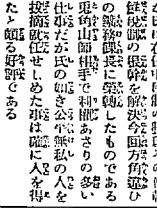 鮮税制の根幹を解決今回方角違ひ
の鑛務課長に榮轉したものである
兎角山師相手で利閥あさりの多い
仕事だが氏の如き公平無私の人を
按摘就任せしめた事は確に人を得
たと頗る好評である